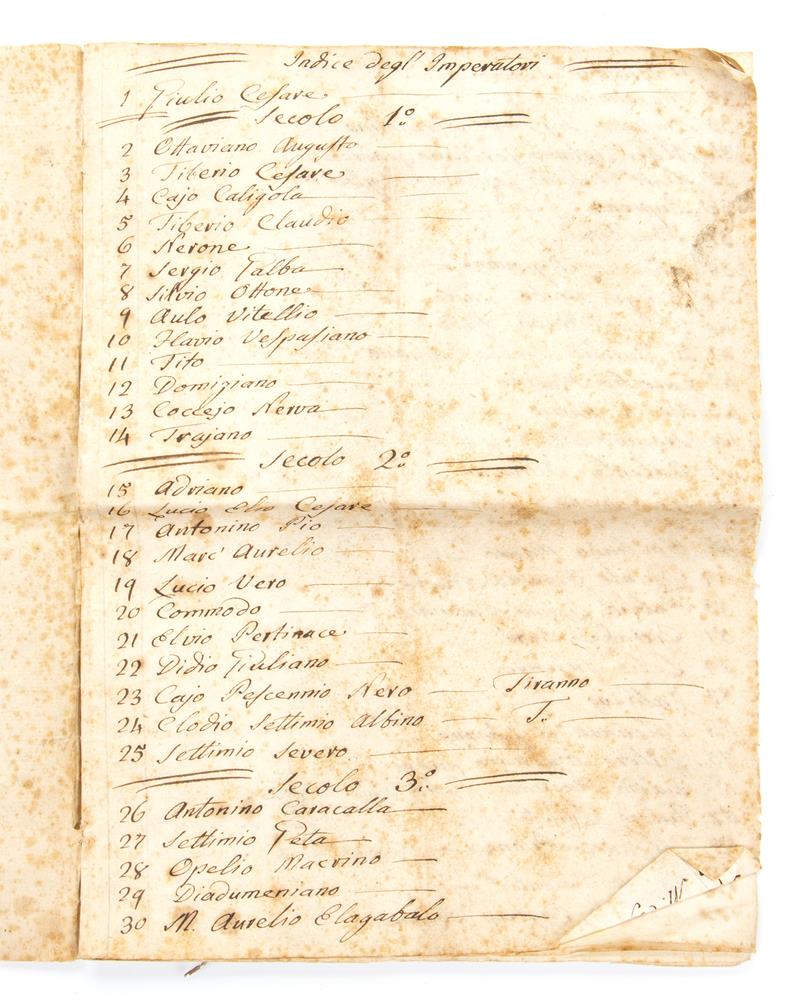 Indice degl' Imperatori
1 Giulio Cesare
Secolo 1º
2 Ottaviano Augusto
3 Tiberio Cesare
4 Cajo Caligola
5 Tiberio Claudio
6 Nerone
7 Sergio Galba
8 Silvio Ottone
9 Aulo Vitellio
10 Flavio Vespasiano
11 Tito
12 Domiziano
13 Coccejo Nerva
14 Trajano
Secolo 2º
15 Adriano
16 Lucio Elio Cesare
17 Antonino Pio
18 Marc' Aurelio
19 Lucio Vero
20 Commodo
21 Elvio Pertinace
22 Didio Giuliano
23 Cajo Pescennio Nero Tiranno
24 Clodio Settimio Albino T.
25 Settimio Severo
Secolo 3º
26 Antonino Caracalla
27 Settimio Geta
28 Opelio Macrino
29 Diadumeniano
30 M. Aurelio Elagabalo